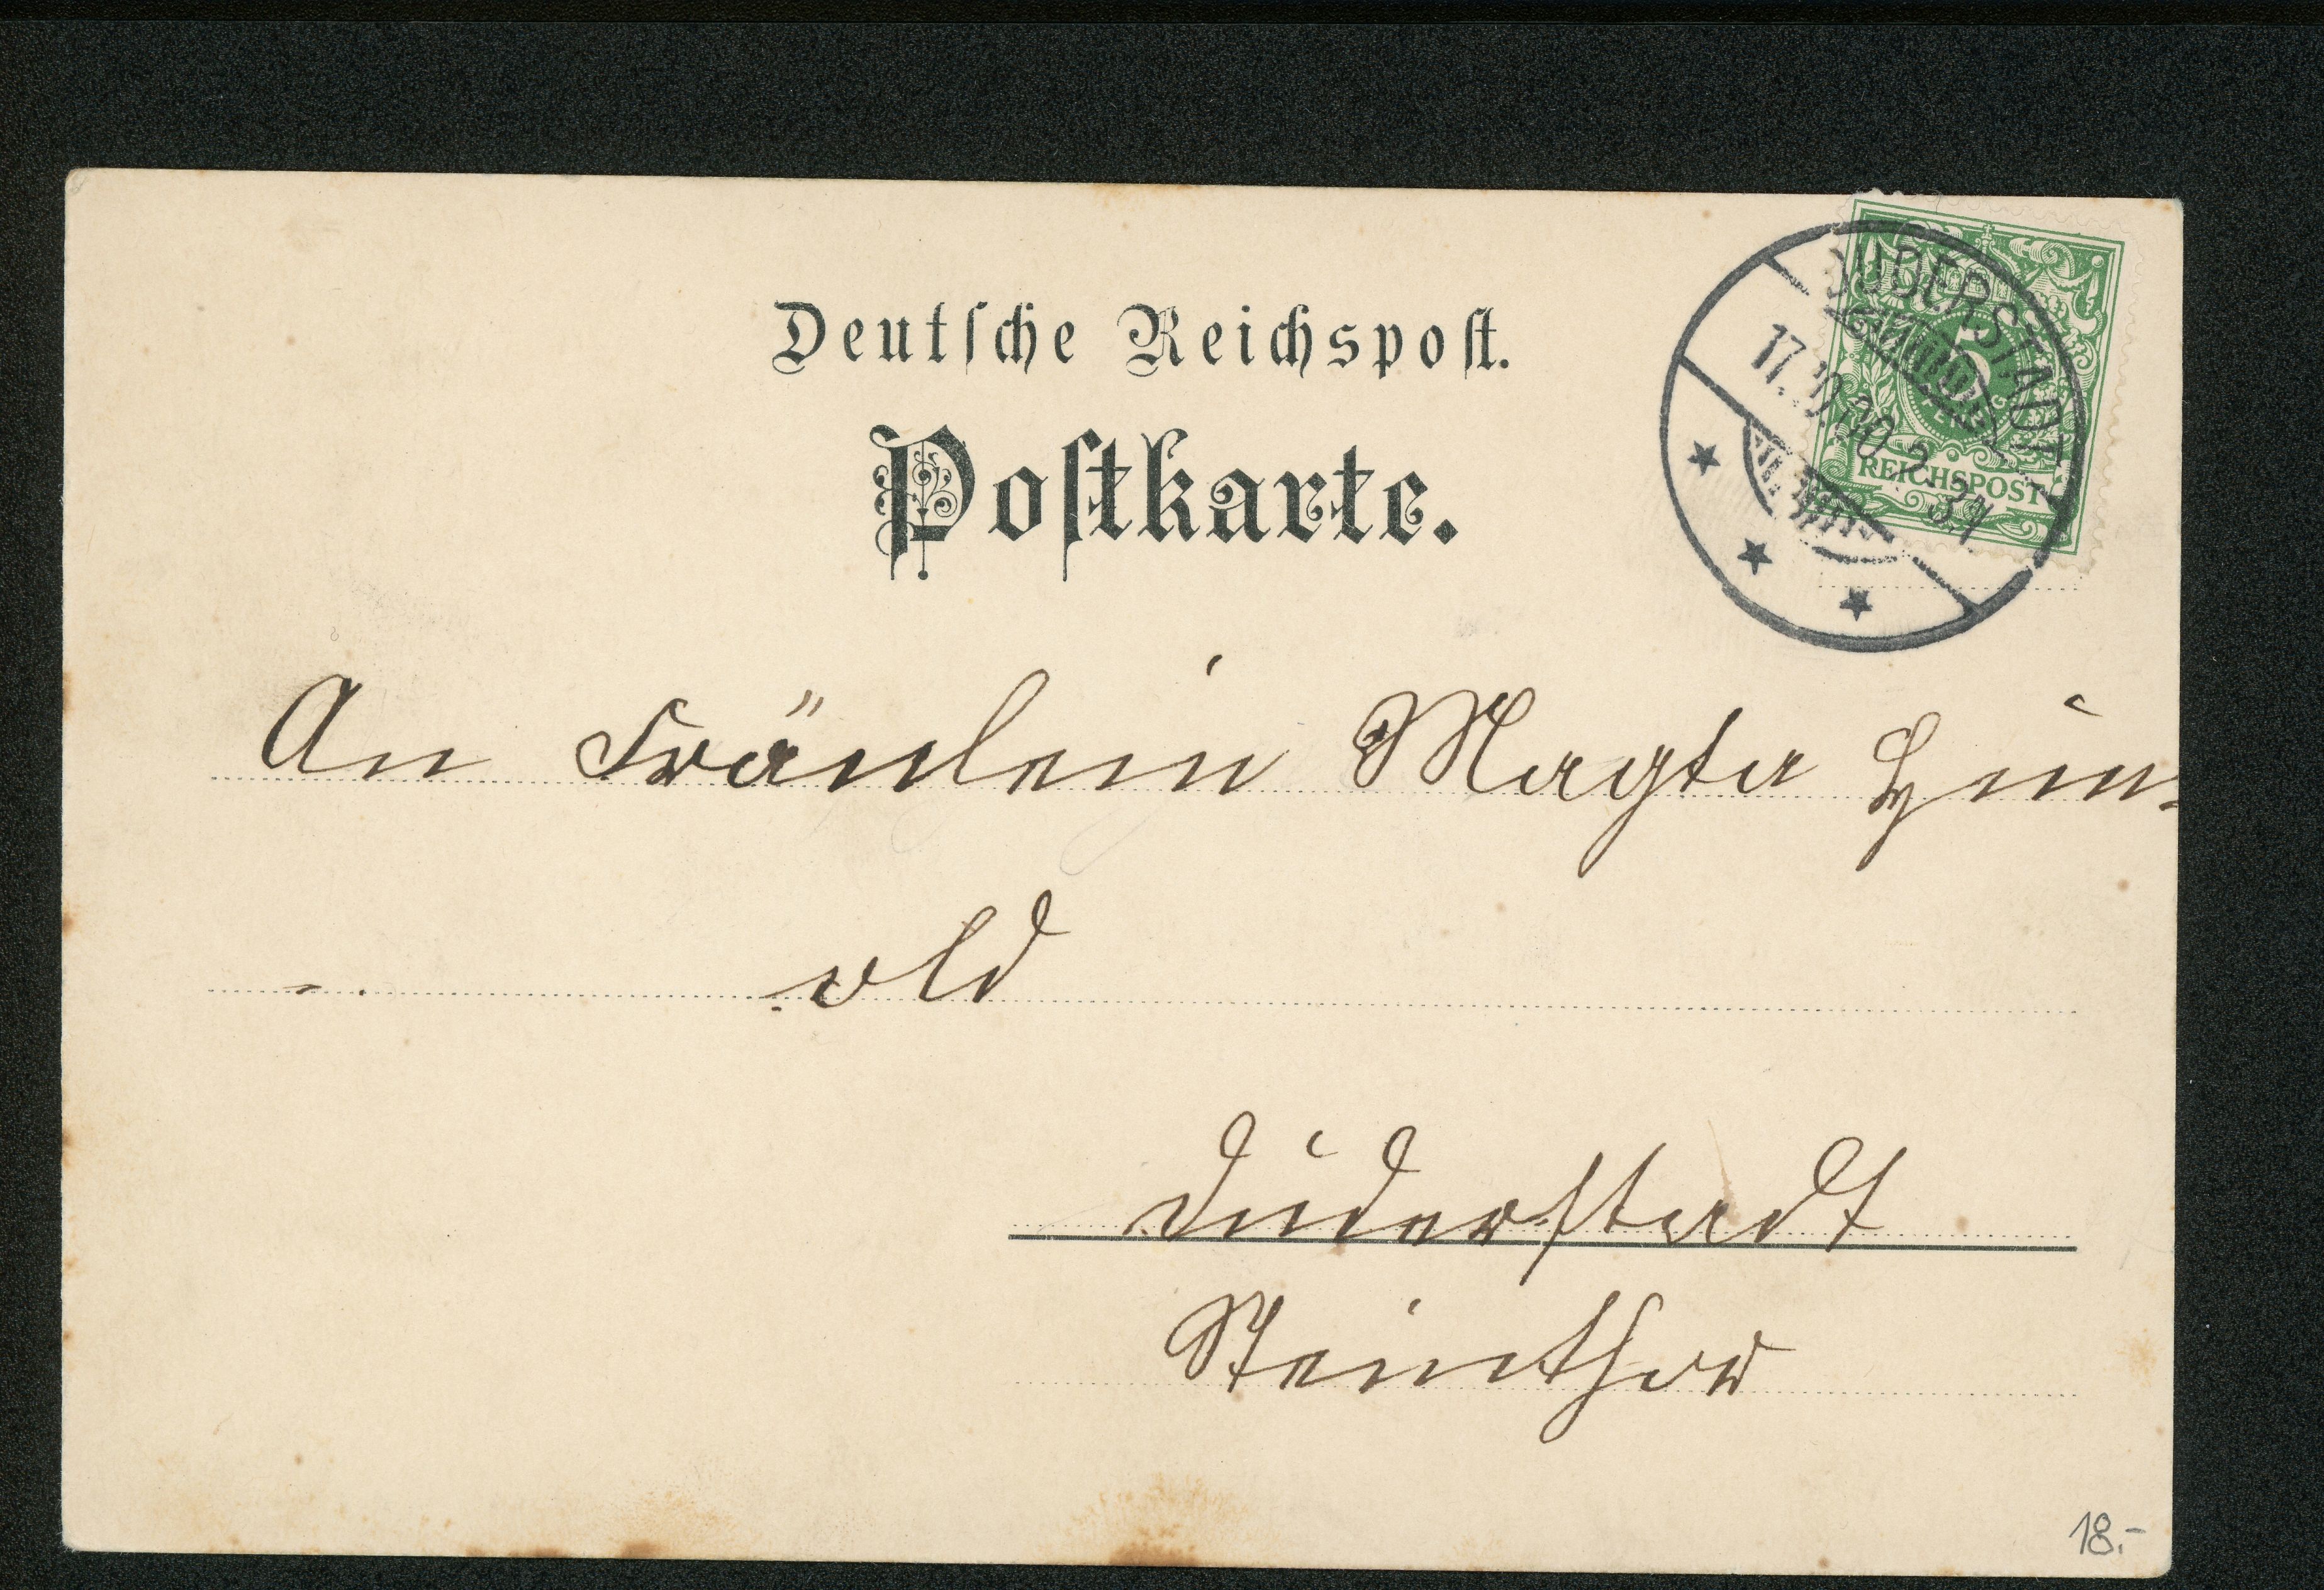 Deutsche Reichspost.
Postkarte.
DUDERSTADT
REICHSPOST
An Fräulein Magta Hun-
old
Duderstadt
Steinthor
18.-